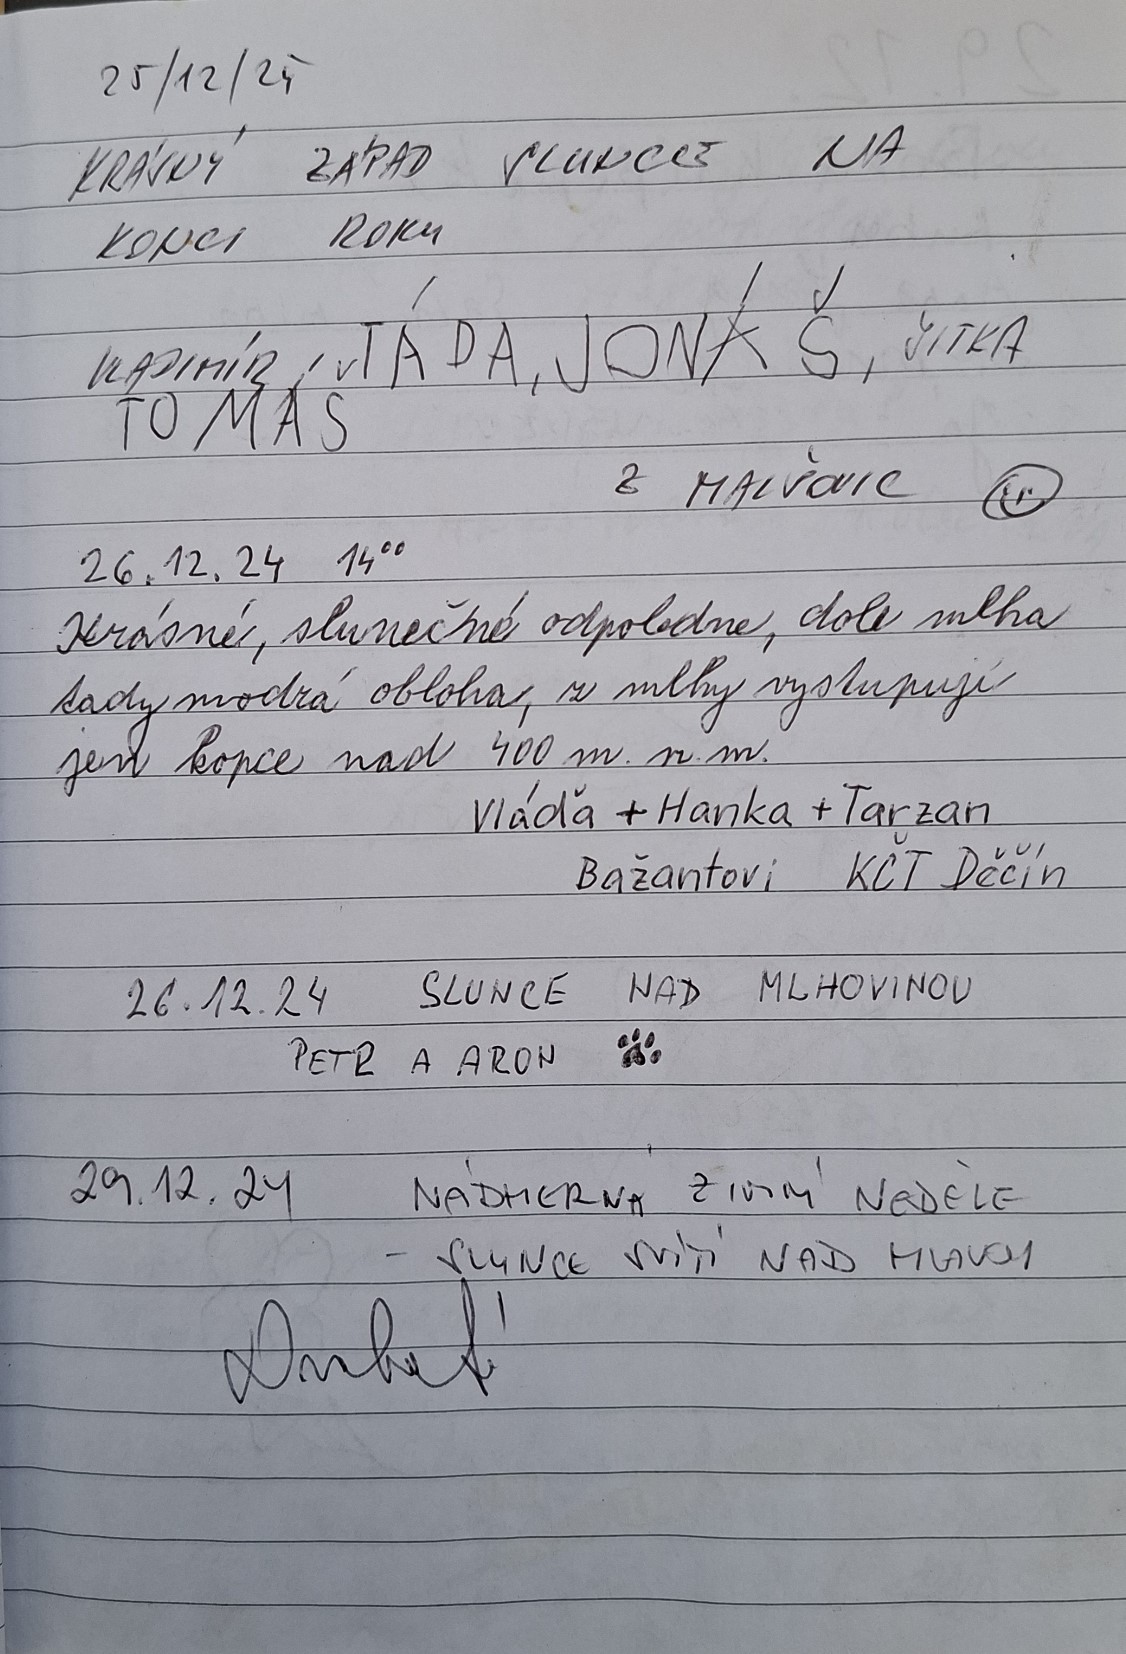 25/12/24
KRÁSNÝ ZÁPAD SLUNCE NA
KONCI ROKU
VLADIMÍR, TÁDA, JONÁŠ, JITKA
TOMÁŠ
Z MALŠOVIC
26.12.24 14⁰⁰
Krásné, slunečné odpoledne, dole mlha
tady modrá obloha, z mlhy vystupují
jen kopce nad 400 m. n. m.
Vláďa + Hanka + Tarzan
Bažantovi KČT Děčín
26.12.24 SLUNCE NAD MLHOVINOU
PETR A ARON
29.12.24 NÁDHERNÁ ZIMNÍ NEDĚLE
- SLUNCE SVÍTÍ NAD MLHOU